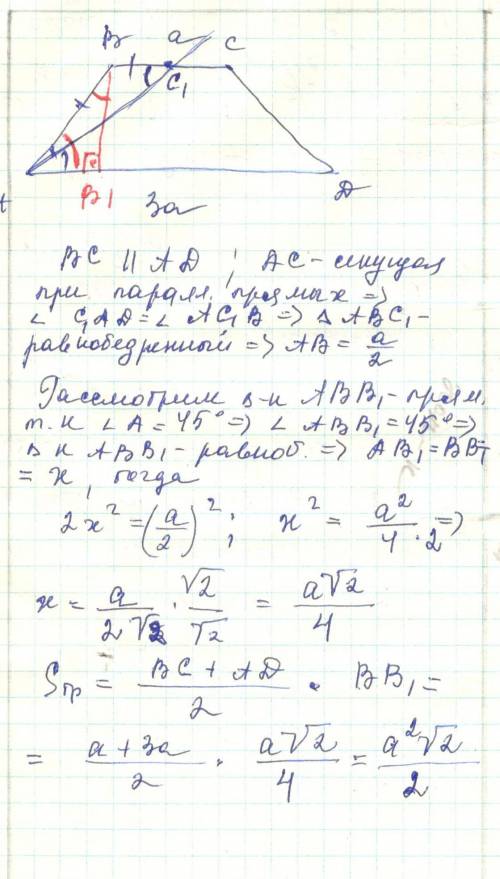 B a C
C₁
A B1 D
3a
BC || AD ; AC - секущая
при паралл. прямых =>
∠ C₁AD = ∠ AC₁B => Δ ABC₁ -
равнобедренный => AB = a/2
Рассмотрим Δ-к ABB₁ - прям.
т.к ∠A = 45° => ∠ ABB₁ = 45° =>
Δ к ABB₁ - равноб. => AB₁ = BB₁
= x, тогда
2x² = (a/2)² ; x² = a²/(4·2) =>
x = a/(2√2) · √2/√2 = a√2/4
Sтр = (BC + AD)/2 · BB₁ =
= (a + 3a)/2 · a√2/4 = a²√2/2